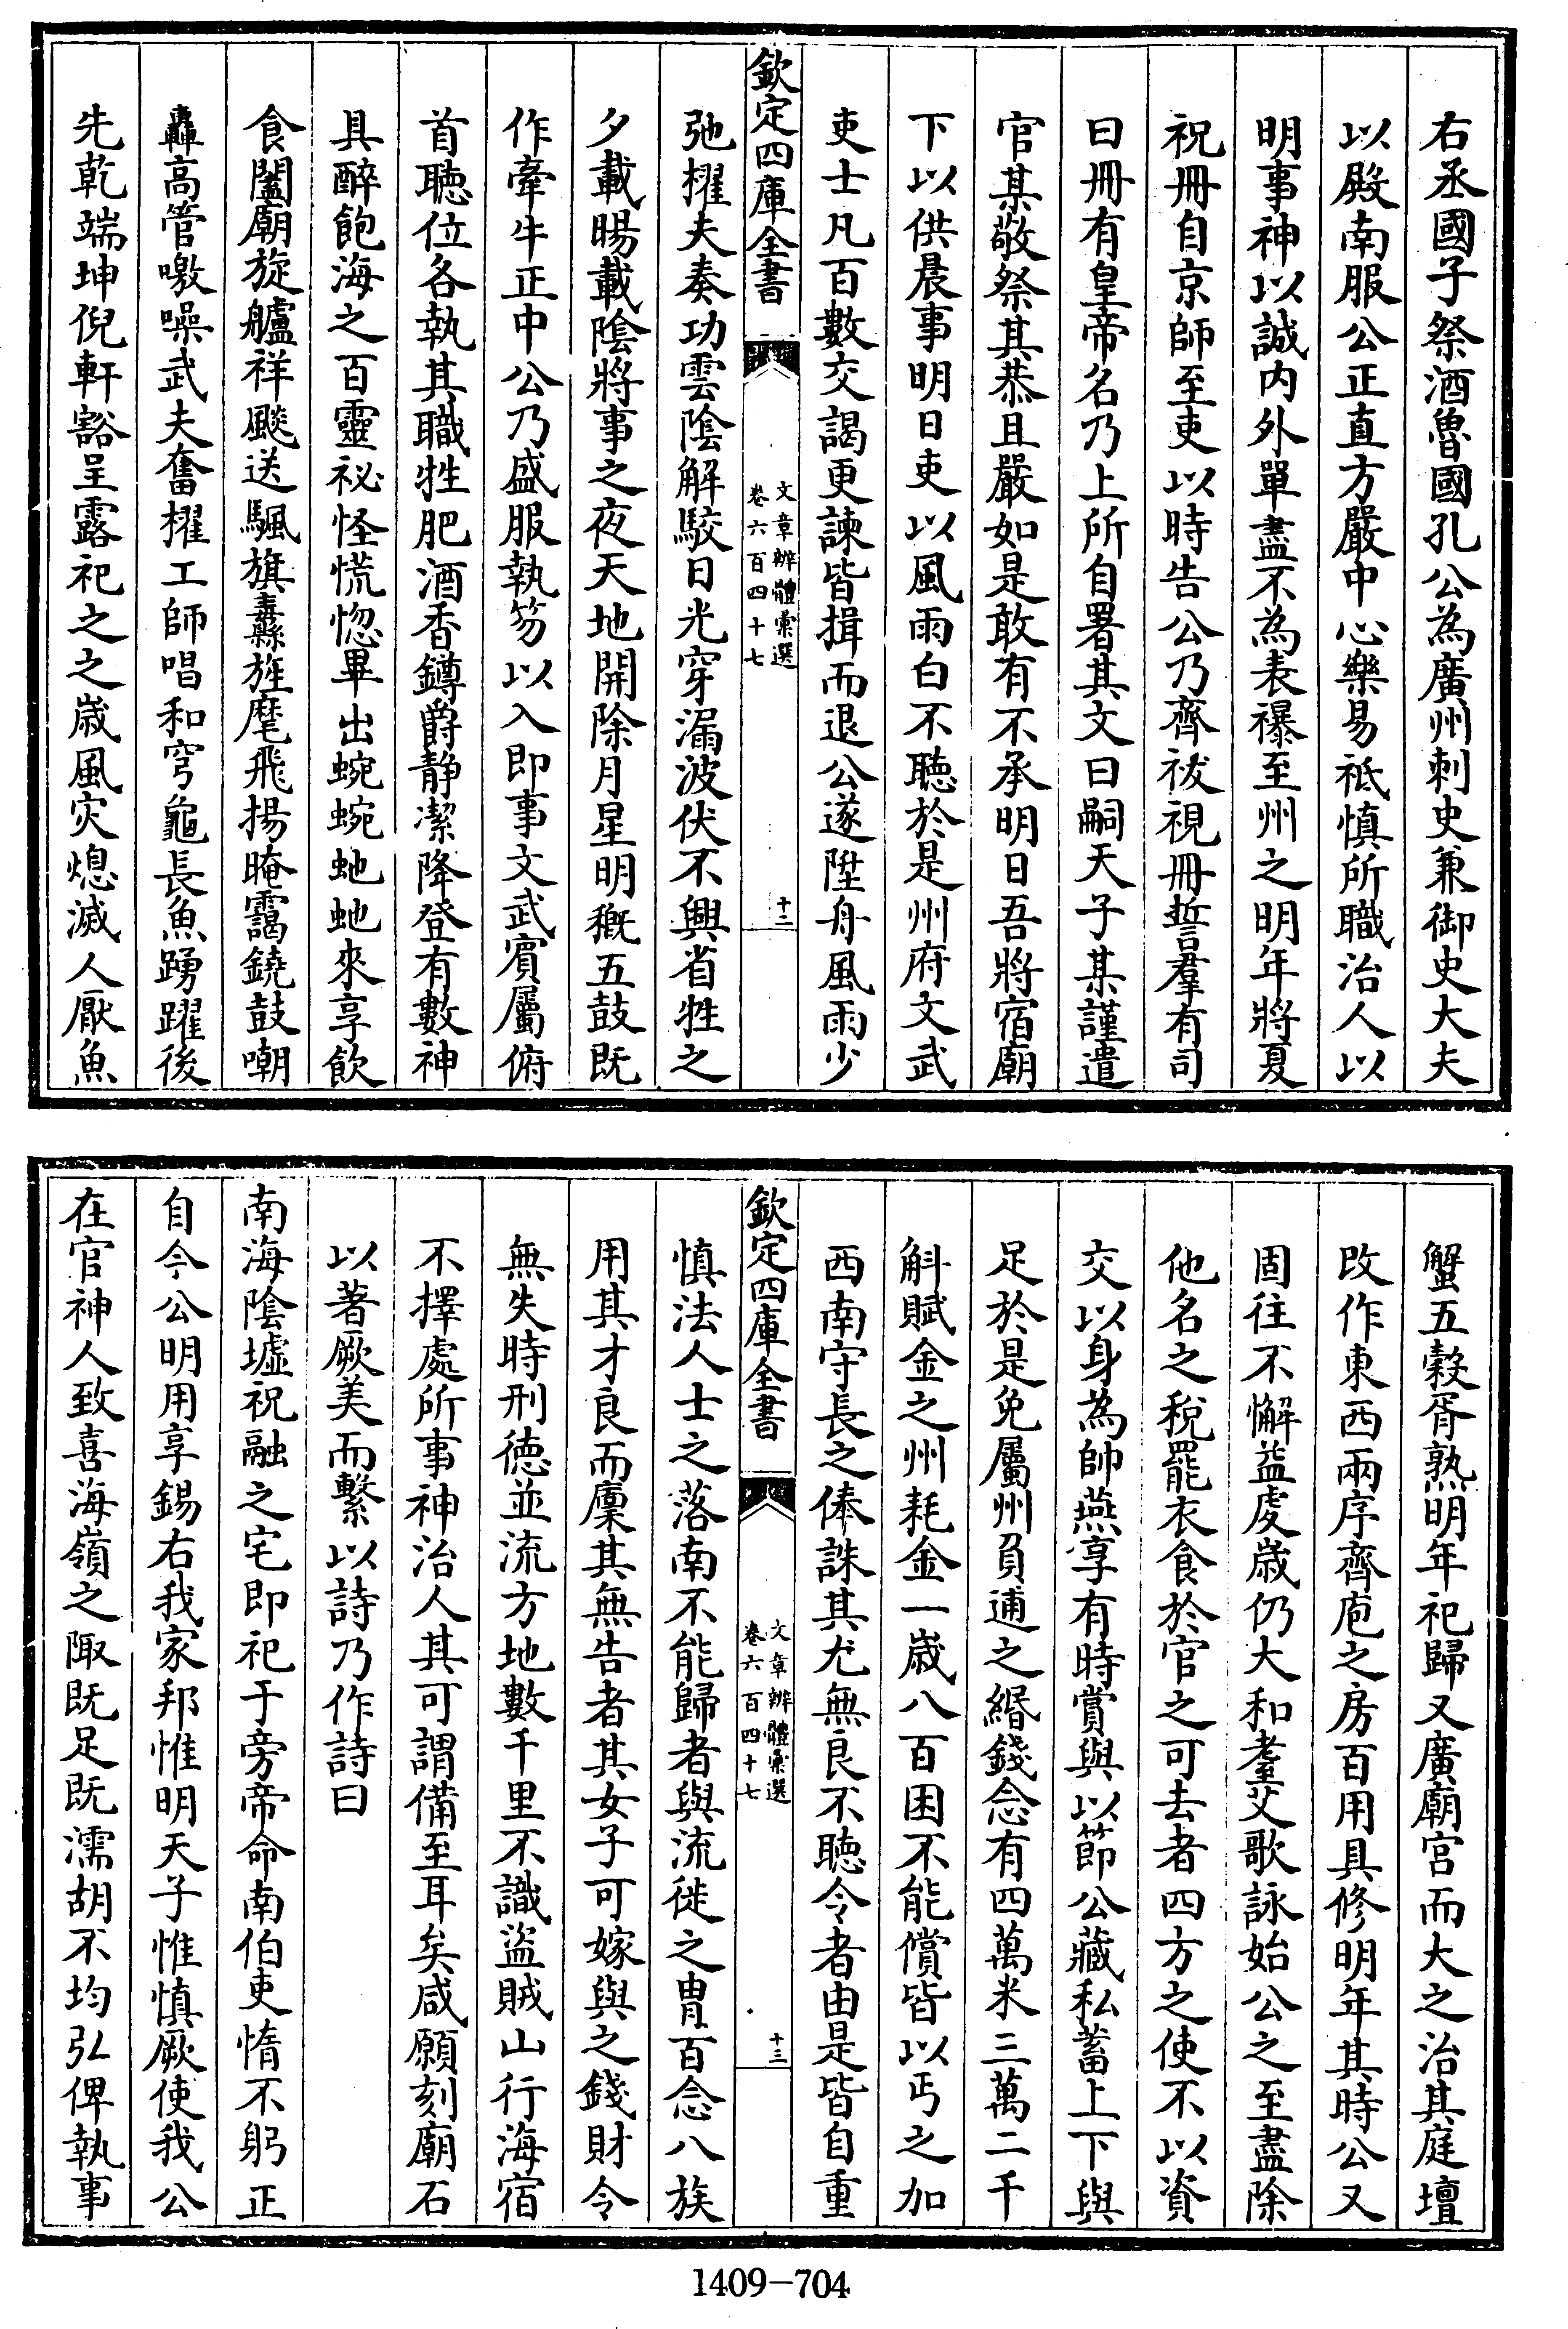 右丞國子祭酒魯國孔公為廣州刺史兼御史大夫
以殿南服公正直方嚴中心樂易祇慎所職治人以
明事神以誠内外單盡不為表襮至州之明年將夏
祝冊自京師至吏以時告公乃齊祓視冊誓羣有司
曰冊有皇帝名乃上所自署其文曰嗣天子某謹遣
官某敬祭其恭且嚴如是敢有不承明日吾將宿廟
下以供晨事明日吏以風雨白不聽於是州府文武
吏士凡百數交謁更諫皆揖而退公遂陞舟風雨少
欽定四庫全書
文章辨體彙選
卷六百四十七
十二
弛櫂夫奏功雲陰解駮日光穿漏波伏不興省牲之
夕載暘載陰將事之夜天地開除月星明穊五鼓既
作牽牛正中公乃盛服執笏以入即事文武賓屬俯
首聽位各執其職牲肥酒香鐏爵静潔降登有數神
具醉飽海之百靈祕怪慌惚畢出蜿蜿虵虵來享飲
食闔廟旋艫祥飈送颿旗纛旄麾飛揚晻靄鐃鼓嘲
轟高管噭噪武夫奮櫂工師唱和穹龜長魚踴躍後
先乾端坤倪軒豁呈露祀之之歲風灾熄滅人厭魚
蟹五穀胥熟明年祀歸又廣廟宫而大之治其庭壇
改作東西兩序齊庖之房百用具修明年其時公又
固往不懈益虔歲仍大和耋艾歌詠始公之至盡除
他名之稅罷衣食於官之可去者四方之使不以資
交以身為帥燕享有時賞與以節公藏私蓄上下與
足於是免屬州負逋之緡錢念有四萬米三萬二千
斛賦金之州耗金一歲八百困不能償皆以丐之加
西南守長之俸誅其尤無良不聽令者由是皆自重
欽定四庫全書
文章辨體彙選
卷六百四十七
十三
慎法人士之落南不能歸者與流徙之胄百念八族
用其才良而廪其無告者其女子可嫁與之錢財令
無失時刑德並流方地數千里不識盜賊山行海宿
不擇處所事神治人其可謂備至耳矣咸願刻廟石
以著厥美而繫以詩乃作詩曰
南海陰墟祝融之宅即祀于旁帝命南伯吏惰不躬正
自今公明用享錫右我家邦惟明天子惟慎厥使我公
在官神人致喜海嶺之陬既足既濡胡不均弘俾執事
1409-704